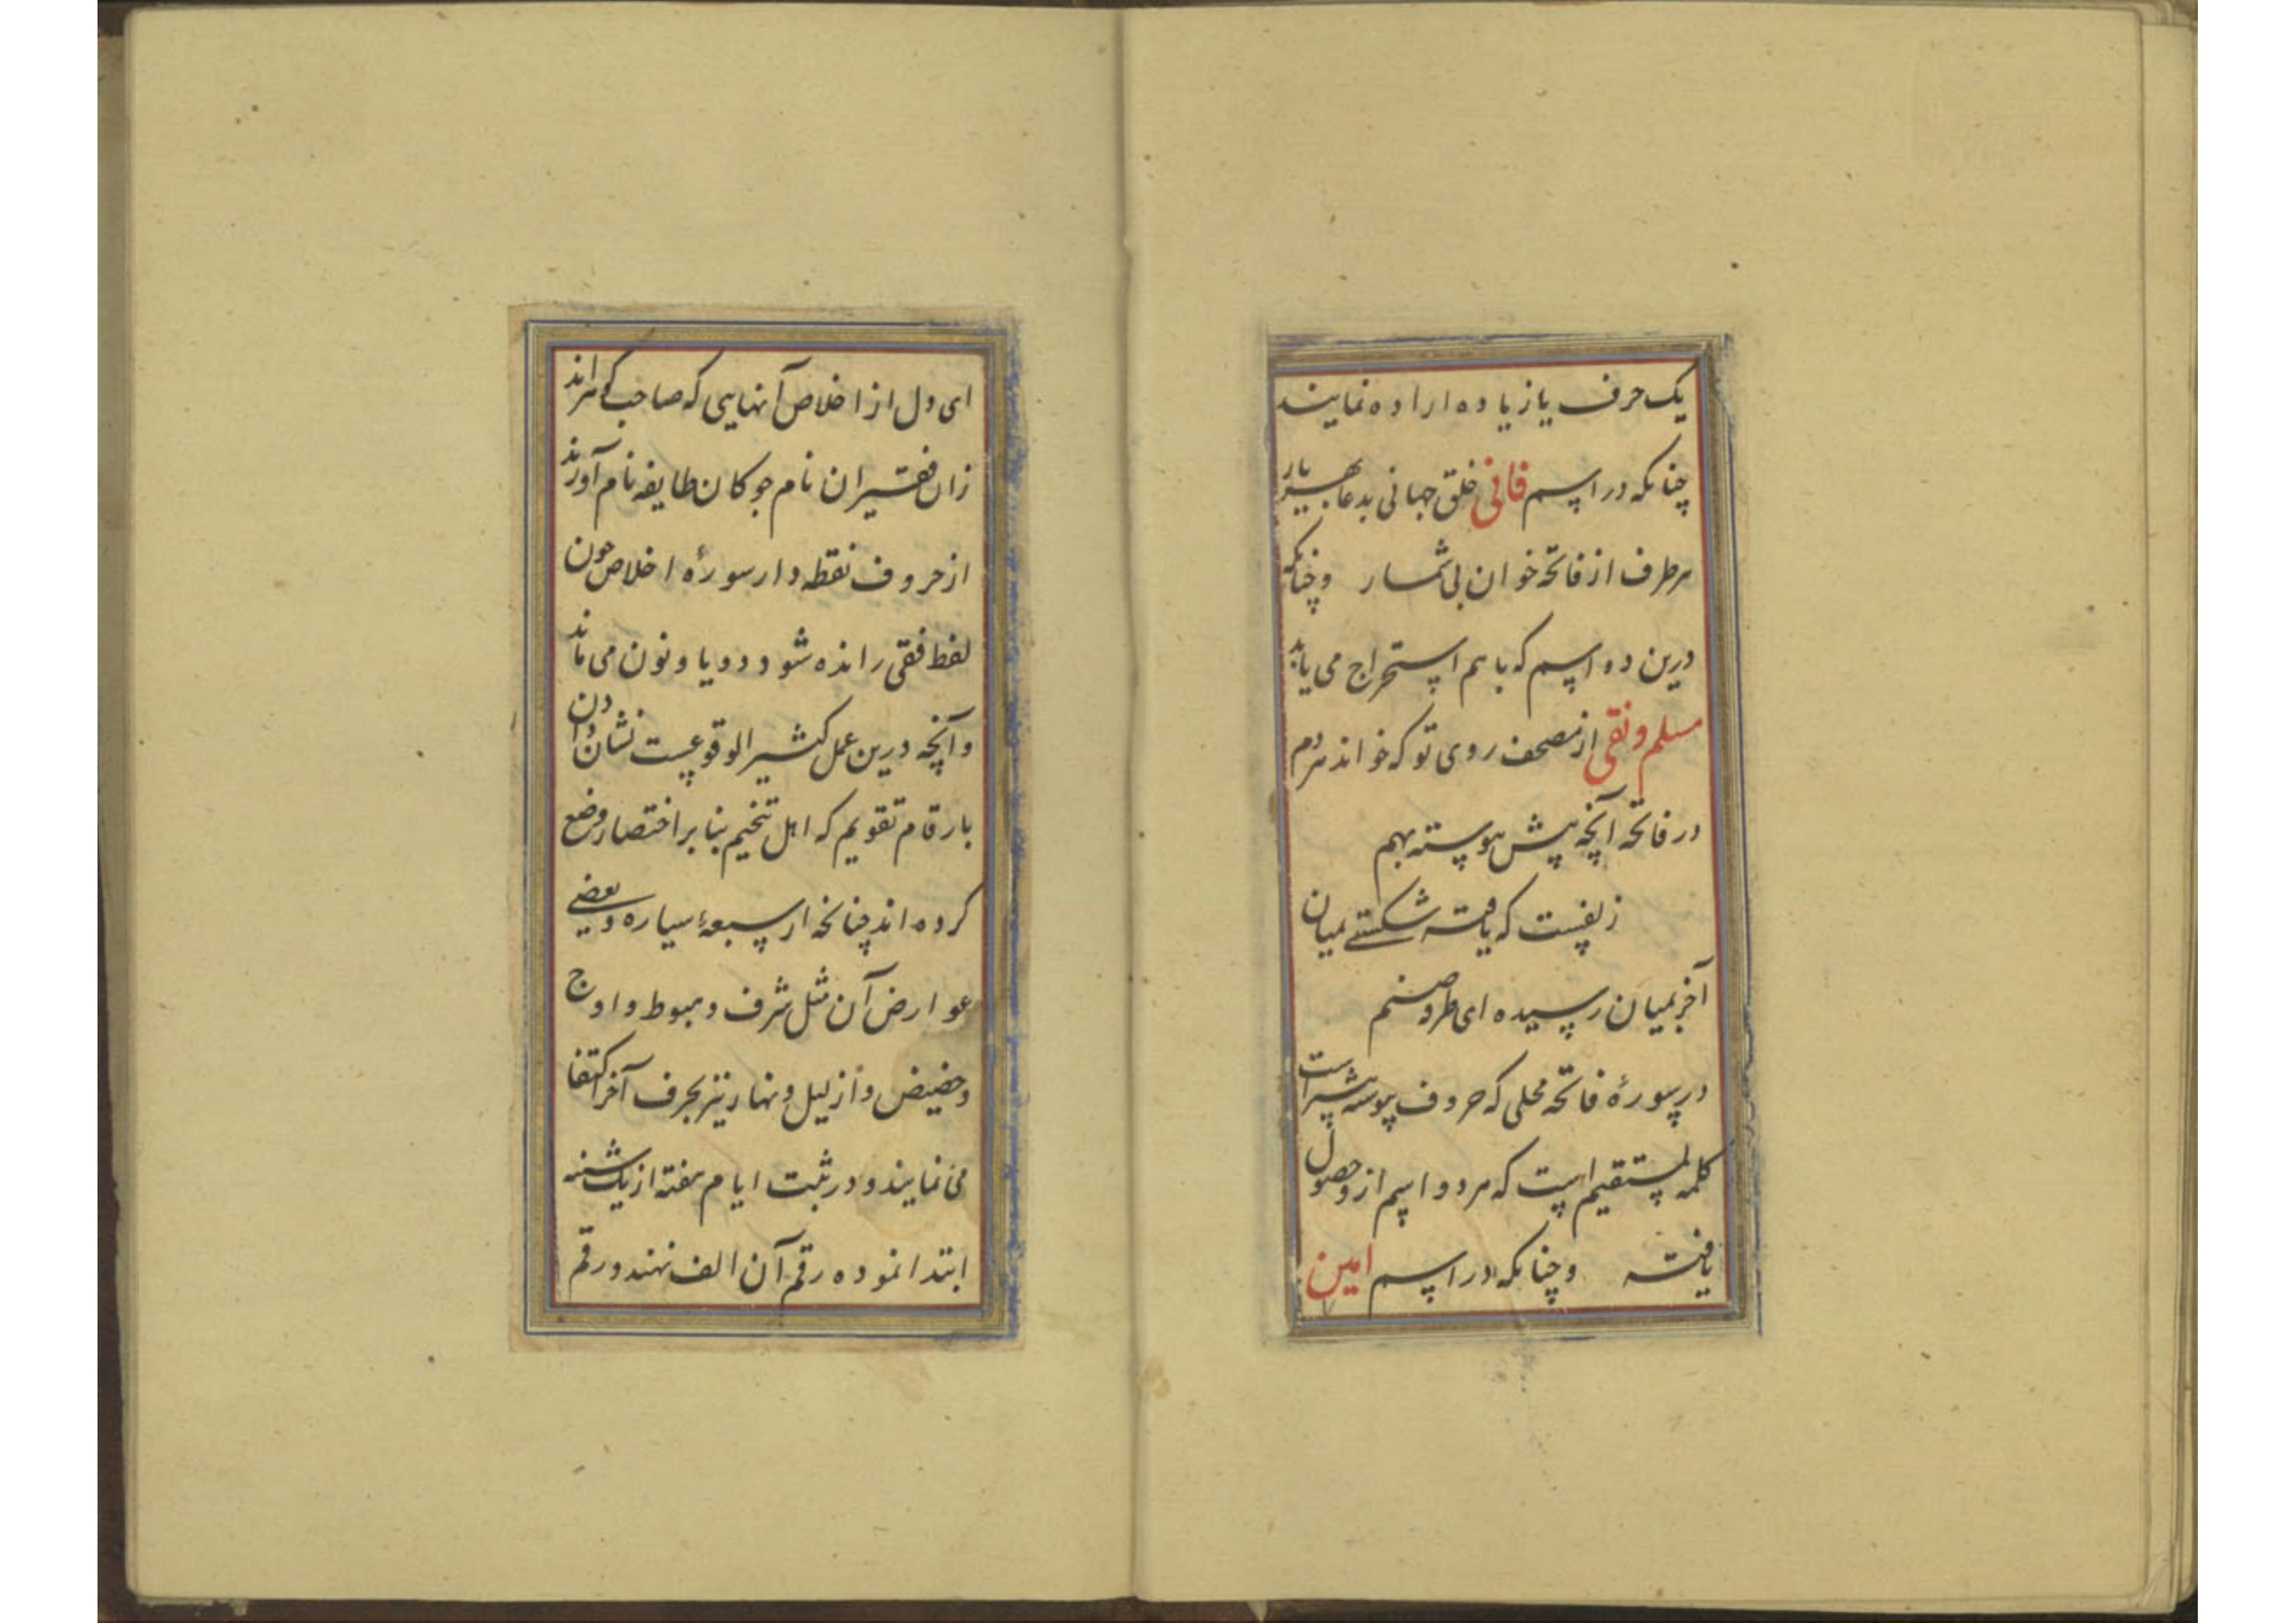 یک حرف یا زیاده اراده نمایند
چنانکه در اسم فانی خلق جهانی بدعا بهر یار
هر طرف از فاتحه خوان بی شمار و چنانکه
درین دو اسم که با هم استخراج می یابد
مسلم و نقی از مصحف روی تو که خواند مردم
در فاتحه آنچه پیش پیوسته بهم
زلفیست که یافته شکستے بمیان
آخر بمیان رسیده ای طره صنم
در سورهٔ فاتحه محلی که حروف پیوسته بیشتر است
کلمه لمستقیم است که هر دو اسم ازو حصول
یافته و چنانکه در اسم امین
ای دل از اخلاص آنهایی که صاحب کامراند
زان فقیران نام جو کان طایفه نام آورند
از حروف نقطه دار سورهٔ اخلاص چون
لفظ فقی رانده شود دو یا و نون می ماند
و آنچه درین عمل کثیر الوقوعست نشان دادن
بارقام تقویم که اهل تنجیم بنابر اختصار وضع
کرده اند چنانچه از سبعهٔ سیاره و بعضے
عوارض آن مثل شرف و هبوط و اوج
و حضیض و از لیل و نهار نیز بحرف آخر اکتفا
می نمایند و در ثبت ایام هفته از یک شنبه
ابتدا نموده رقم آن الف نهند و رقم